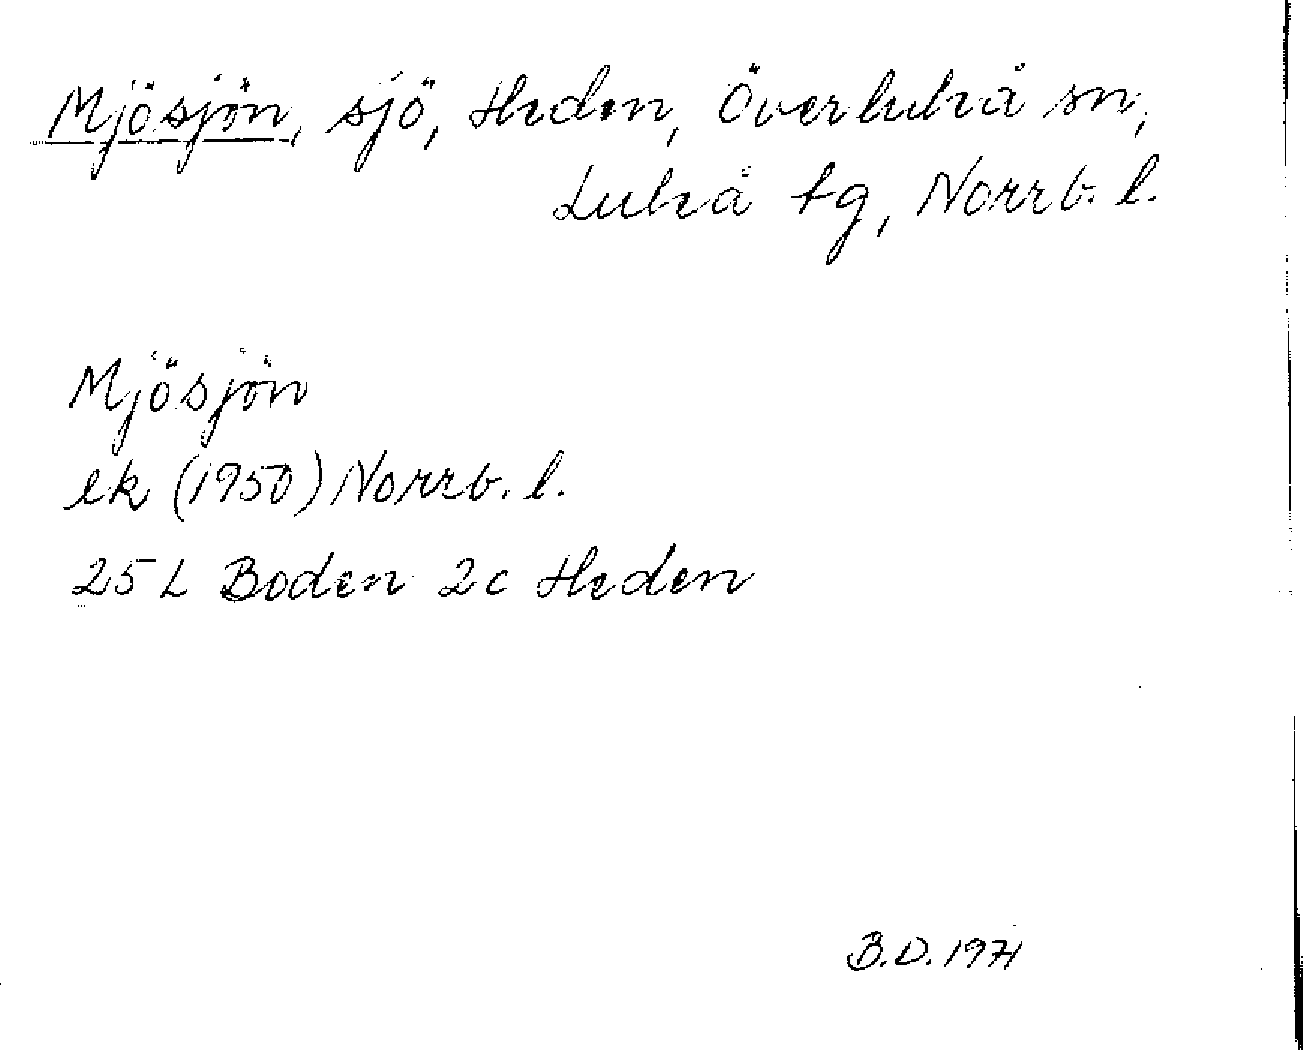 Mjösjön, sjö, Heden, Överluleå sn,
Luleå tg, Norrb. l.
Mjösjön
ek (1950) Norrb. l.
25 L Boden 2c Heden
B.D. 1971